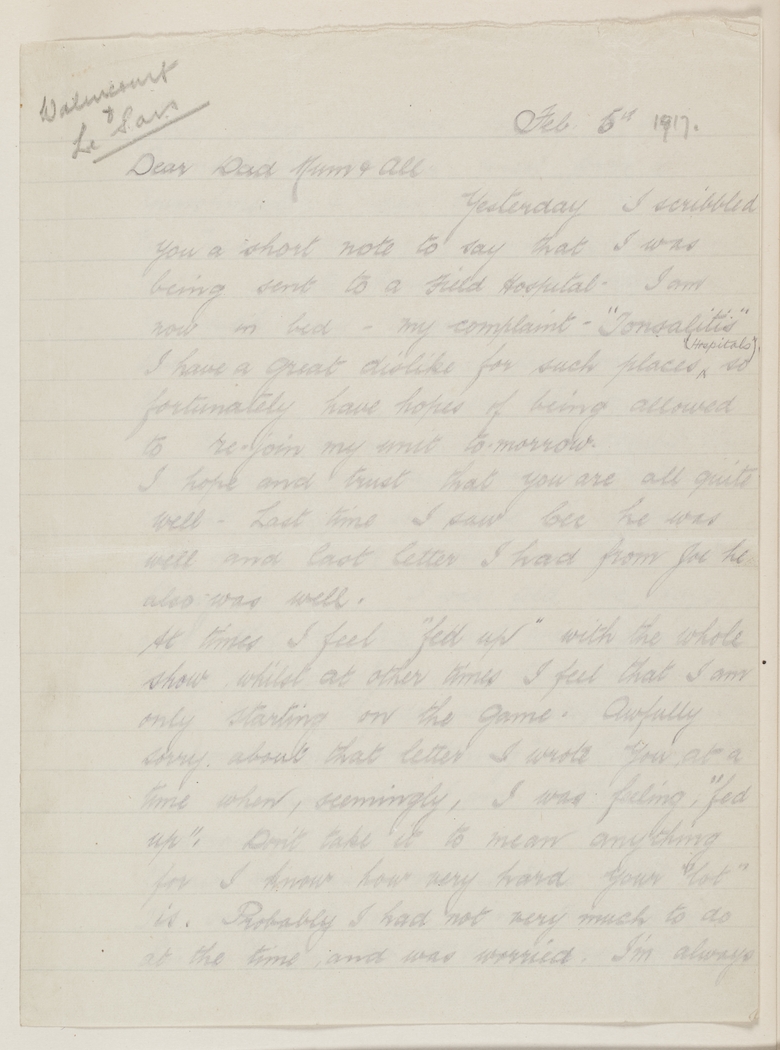 Le Sars
Feb. 5th 1917.
Dear Dad Mum & All
Yesterday I scribbled
you a short note to say that I was
being sent to a Field Hospital. I am
now in bed - my complaint - "Tonsalitis"
(Hospitals)
I have a great dislike for such places, so
fortunately have hopes of being allowed
to re-join my unit to-morrow.
I hope and trust that you are all quite
well - Last time I saw he was
well and last letter I had from Joe he
also was well.
At times I feel "fed up" with the whole
show whilst at other times I feel that I am
only starting on the game. Awfully
sorry about that letter I wrote you at a
time when, seemingly, I was feeling, "fed
up". Don't take it to mean anything
for I know how very hard your "lot"
is. Probably I had not very much to do
at the time and was worried. I'm always